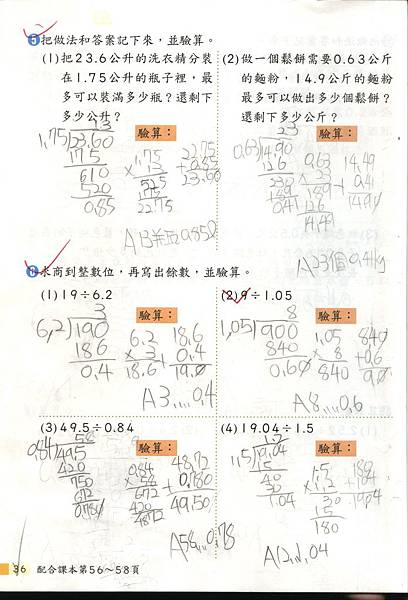 5 把做法和答案記下來，並驗算。
(1)把23.6公升的洗衣精分裝
在1.75公升的瓶子裡，最
多可以裝滿多少瓶？還剩下
多少公升？
13
1.75 23.60
175
610
520
0.85
驗算：
1.75
× 13
525
175
22.75
22.75
+0.85
23.60
(2)做一個鬆餅需要0.63公斤
的麵粉，14.9公斤的麵粉
最多可以做出多少個鬆餅？
還剩下多少公斤？
23
0.63 14.90
126
230
189
0.41
驗算：
0.63
189
126
14.49
14.49
0.41
A23個0.41kg
求商到整數位，再寫出餘數，並驗算。
(1)19÷6.2
3
6.2 190
186
0.4
驗算：
6.2
× 3
18.6
18.6
+0.4
19.0
A3....0.4
(2)9÷1.05
8
1.05 900
840
0.60
驗算：
1.05
× 8
840
840
+0.6
9.0
A8....0.6
(3)49.5÷0.84
58
0.84 495
420
750
672
0.780
驗算：
0.84
× 58
672
420
4872
48.72
+0.780
49.50
(4)19.04÷1.5
1.5 19.04
15
40
30
1.04
驗算：
1.5
30
15
180
36 配合課本第56～58頁